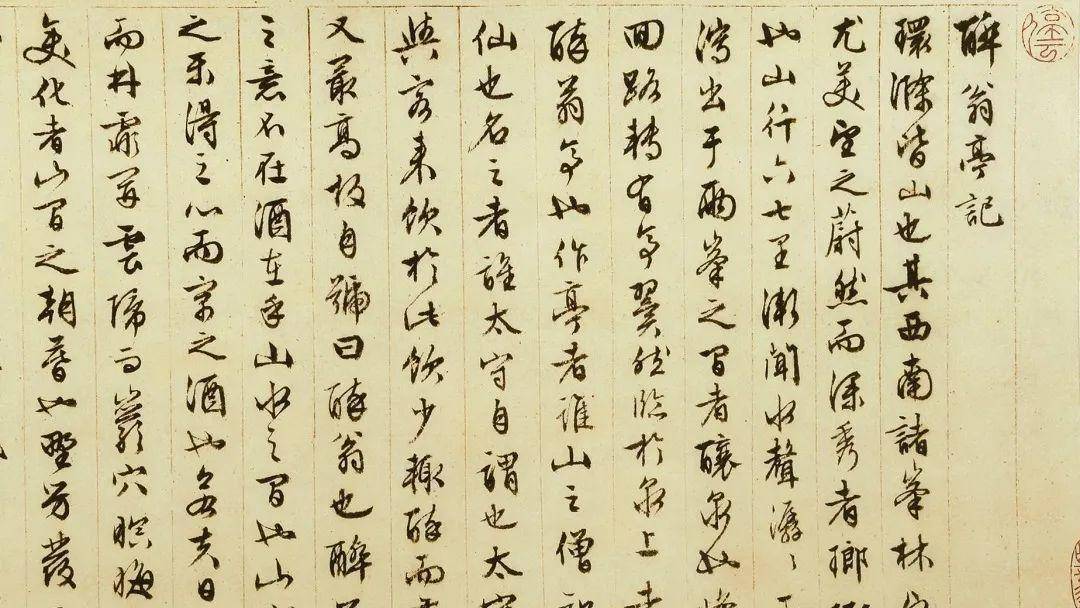 醉翁亭記
環滁皆山也其西南諸峯林
尤美望之蔚然而深秀者瑯
也山行六七里漸聞水聲潺〻
瀉出于兩峯之間者釀泉也
回路轉有亭翼然臨於泉上
醉翁亭也作亭者誰山之僧
仙也名之者誰太守自謂也太
與客來飲於此飲少輒醉而
又最高故自號曰醉翁也醉
之意不在酒在乎山水之間也山
之樂得之心而寓之酒也若夫日
而林霏開雲歸而巖穴暝晦
變化者山間之朝暮也野芳發